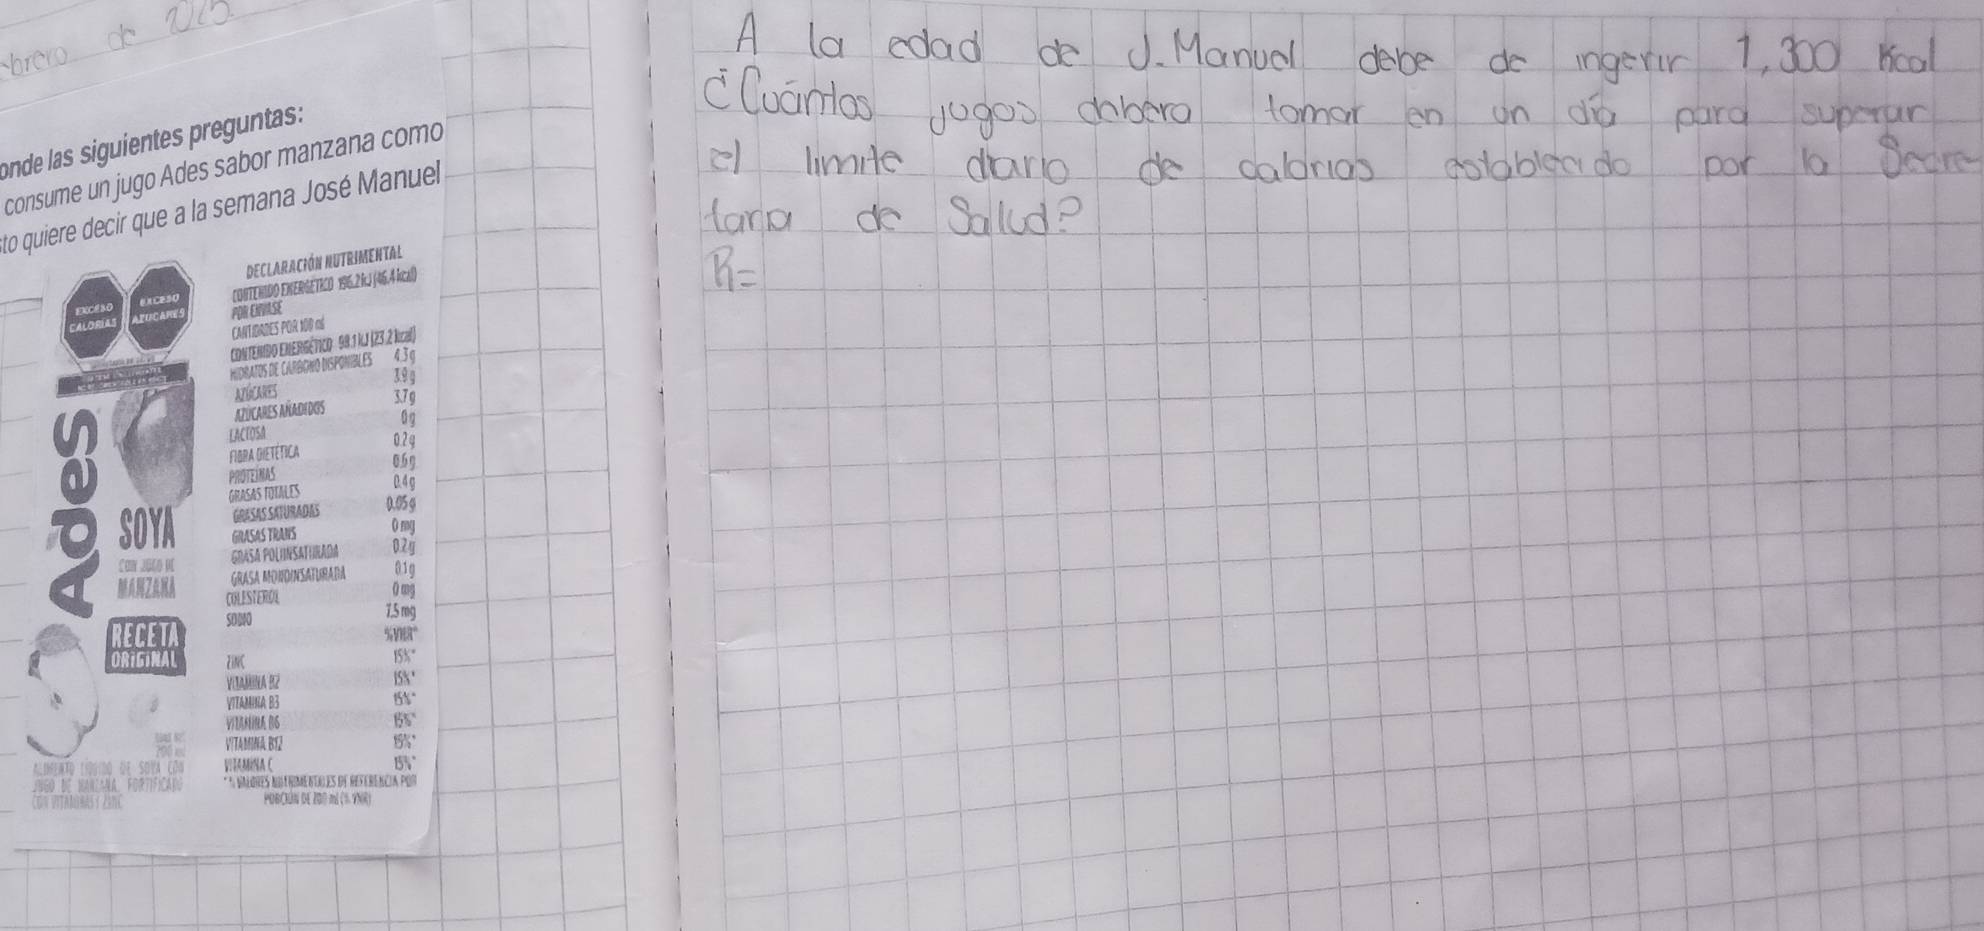 brero de
onde las siguientes preguntas:
consume un jugo Ades sabor manzana como
sto quiere decir que a la semana José Manuel
EXCESO CALORÍAS
EXCESO AZÚCARES
Ades
SOYA
CON JUGO DE
MANZANA
RECETA
ORIGINAL
ALIMENTO LÍQUIDO DE SOYA CON
JUGO DE MANZANA, FORTIFICADO
CON VITAMINAS Y ZINC
DECLARACIÓN NUTRIMENTAL
CONTENIDO ENERGÉTICO 196.2 kJ (46.4 kcal)
POR ENVASE
CANTIDADES POR 100 ml
CONTENIDO ENERGÉTICO 98.1 kJ (23.2 kcal)
HIDRATOS DE CARBONO DISPONIBLES 4.3 g
AZÚCARES 3.9 g
AZÚCARES AÑADIDOS 3.7 g
LACTOSA 0 g
FIBRA DIETÉTICA 0.2 g
PROTEÍNAS 0.6 g
GRASAS TOTALES 0.4 g
GRASAS SATURADAS 0.05 g
GRASAS TRANS 0 mg
GRASA POLIINSATURADA 0.2 g
GRASA MONOINSATURADA 0.1 g
COLESTEROL 0 mg
SODIO
%VNR*
ZINC 15%*
VITAMINA B2 15%*
VITAMINA B3 15%*
VITAMINA B6 15%*
VITAMINA B12 15%*
VITAMINA C 15%*
*% VALORES NUTRIMENTALES DE REFERENCIA POR
PORCIÓN DE 200 ml (% VNR)
A la edad de J. Manuel debe de ingerir 1,300 Kcal
¿Cuántos jugos debera tomar en un día para superar
el limite diario de calorias establecido por la Secre
taria de Salud?
R=